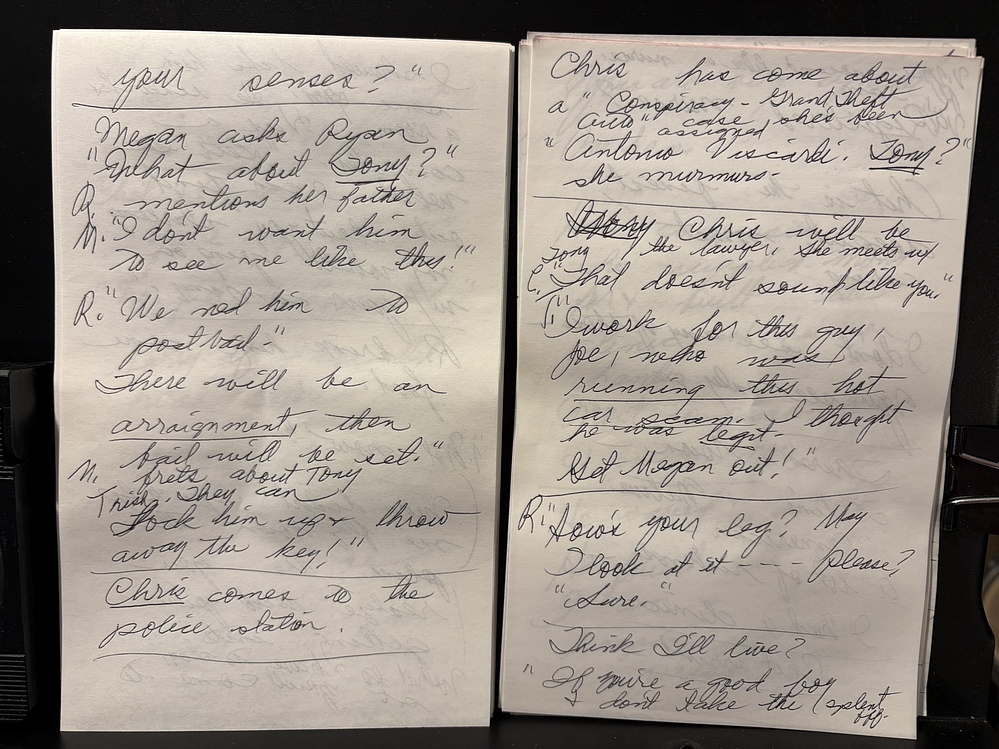 your senses?"
Megan asks Ryan
"What about Tony?"
R. mentions her father
M. "I don't want him
to see me like this!"
R. "We need him to
post bail-"
There will be an
arraignment, then
bail will be set."
M. frets about Tony
Trish. They can
Lock him up & throw
away the key!"
Chris comes to the
police station.
Chris has come about
a "Conspiracy - Grand Theft
auto" case, she's been
assigned
"Antonio Viscardi. Tony?"
she murmurs-
Chris will be
Tony / the lawyer, she meets up.
C. "That doesn't sound like you."
T. "I work for this guy,
Joe, who was
running this hot
car scam. I thought
he was legit-
Get Megan out!"
R. "How's your leg? May
I look at it ---- please?
"Sure."
Think I'll live?
"If you're a good boy
& don't take the splent
off-